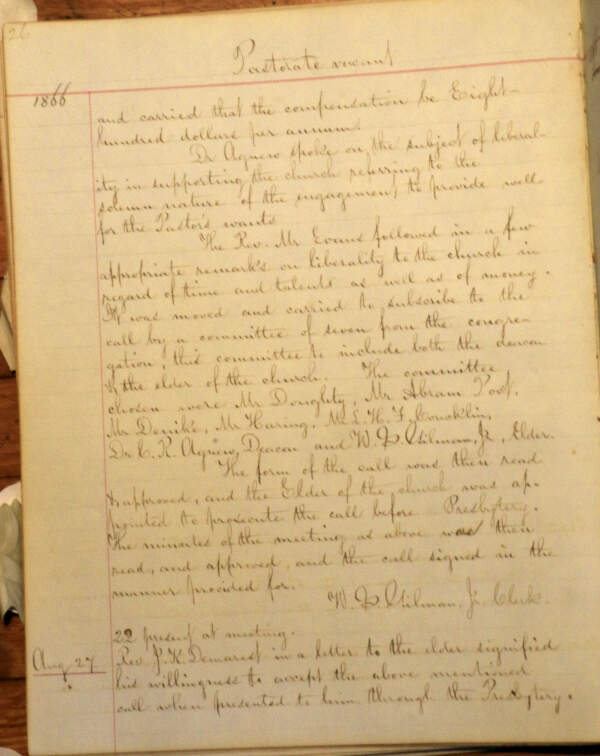 26
Pastorate vacant
1866
and carried that the compensation be Eight-
hundred dollars per annum.
Dr Agnew spoke on the subject of liberal-
ity in supporting the church referring to the
solemn nature of the engagement, to provide well
for the Pastor's wants
The Rev. Mr. Evans followed in a few
appropriate remarks on liberality to the church in
regard of time and talents as well as of money.
It was moved and carried to subscribe to the
call by a committee of seven from the congre-
gation, this committee to include both the deacon
& the elder of the church. The committee
chosen were Mr Doughty, Mr. Abram Post,
Mr Denike, Mr Haring, Mr L. H. F. Concklin,
Dr. C. R. Agnew, Deacon and W. Stilman, Jr, Elder.
The form of the call was then read
& approved, and the Elder of the church was ap-
pointed to prosecute the call before Presbytery.
The minutes of the meeting as above was then
read, and approved, and the call signed in the
manner provided for.
W. Stilman, Jr. Clerk.
22 present at meeting.
Aug 27
Rev J. K. Demarest in a letter to the elder signified
his willingness to accept the above mentioned
call when presented to him through the Presbytery.